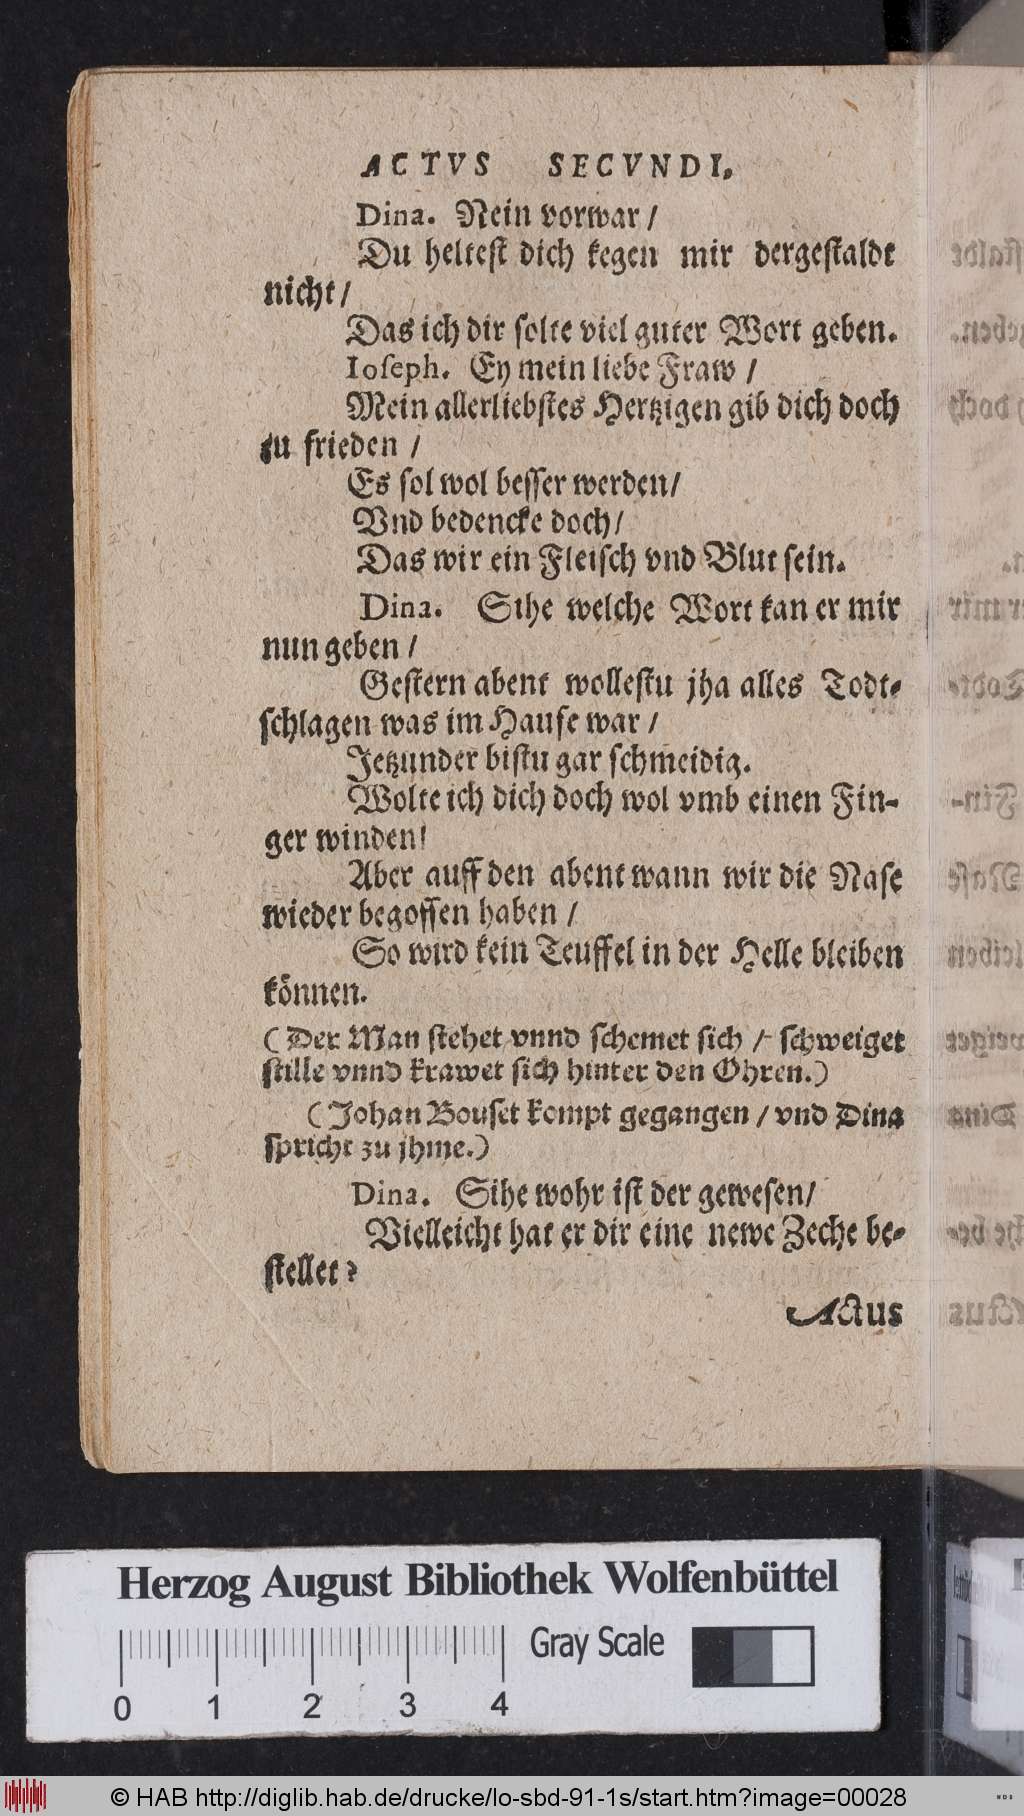 ACTVS SECVNDI.
Dina. Nein vorwar /
Du heltest dich kegen mir dergestaldt
nicht /
Das ich dir solte viel guter Wort geben.
Ioseph. Ey mein liebe Fraw /
Mein allerliebstes Hertzigen gib dich doch
zu frieden /
Es sol wol besser werden /
Vnd bedencke doch /
Das wir ein Fleisch vnd Blut sein.
Dina. Sihe welche Wort kan er mir
nun geben /
Gestern abent wollestu jha alles Todt-
schlagen was im Hause war /
Jetzunder bistu gar schmeidig.
Wolte ich dich doch wol vmb einen Fin-
ger winden /
Aber auff den abent wann wir die Nase
wieder begossen haben /
So wird kein Teuffel in der Helle bleiben
können.
(Der Man stehet vnnd schemet sich / schweiget
stille vnnd krawet sich hinter den Ohren.)
(Johan Bouset kompt gegangen / vnd Dina
spricht zu jhme.)
Dina. Sihe wohr ist der gewesen /
Vielleicht hat er dir eine newe Zeche be-
stellet?
Actus
Herzog August Bibliothek Wolfenbüttel
Gray Scale
0 1 2 3 4
© HAB http://diglib.hab.de/drucke/lo-sbd-91-1s/start.htm?image=00028